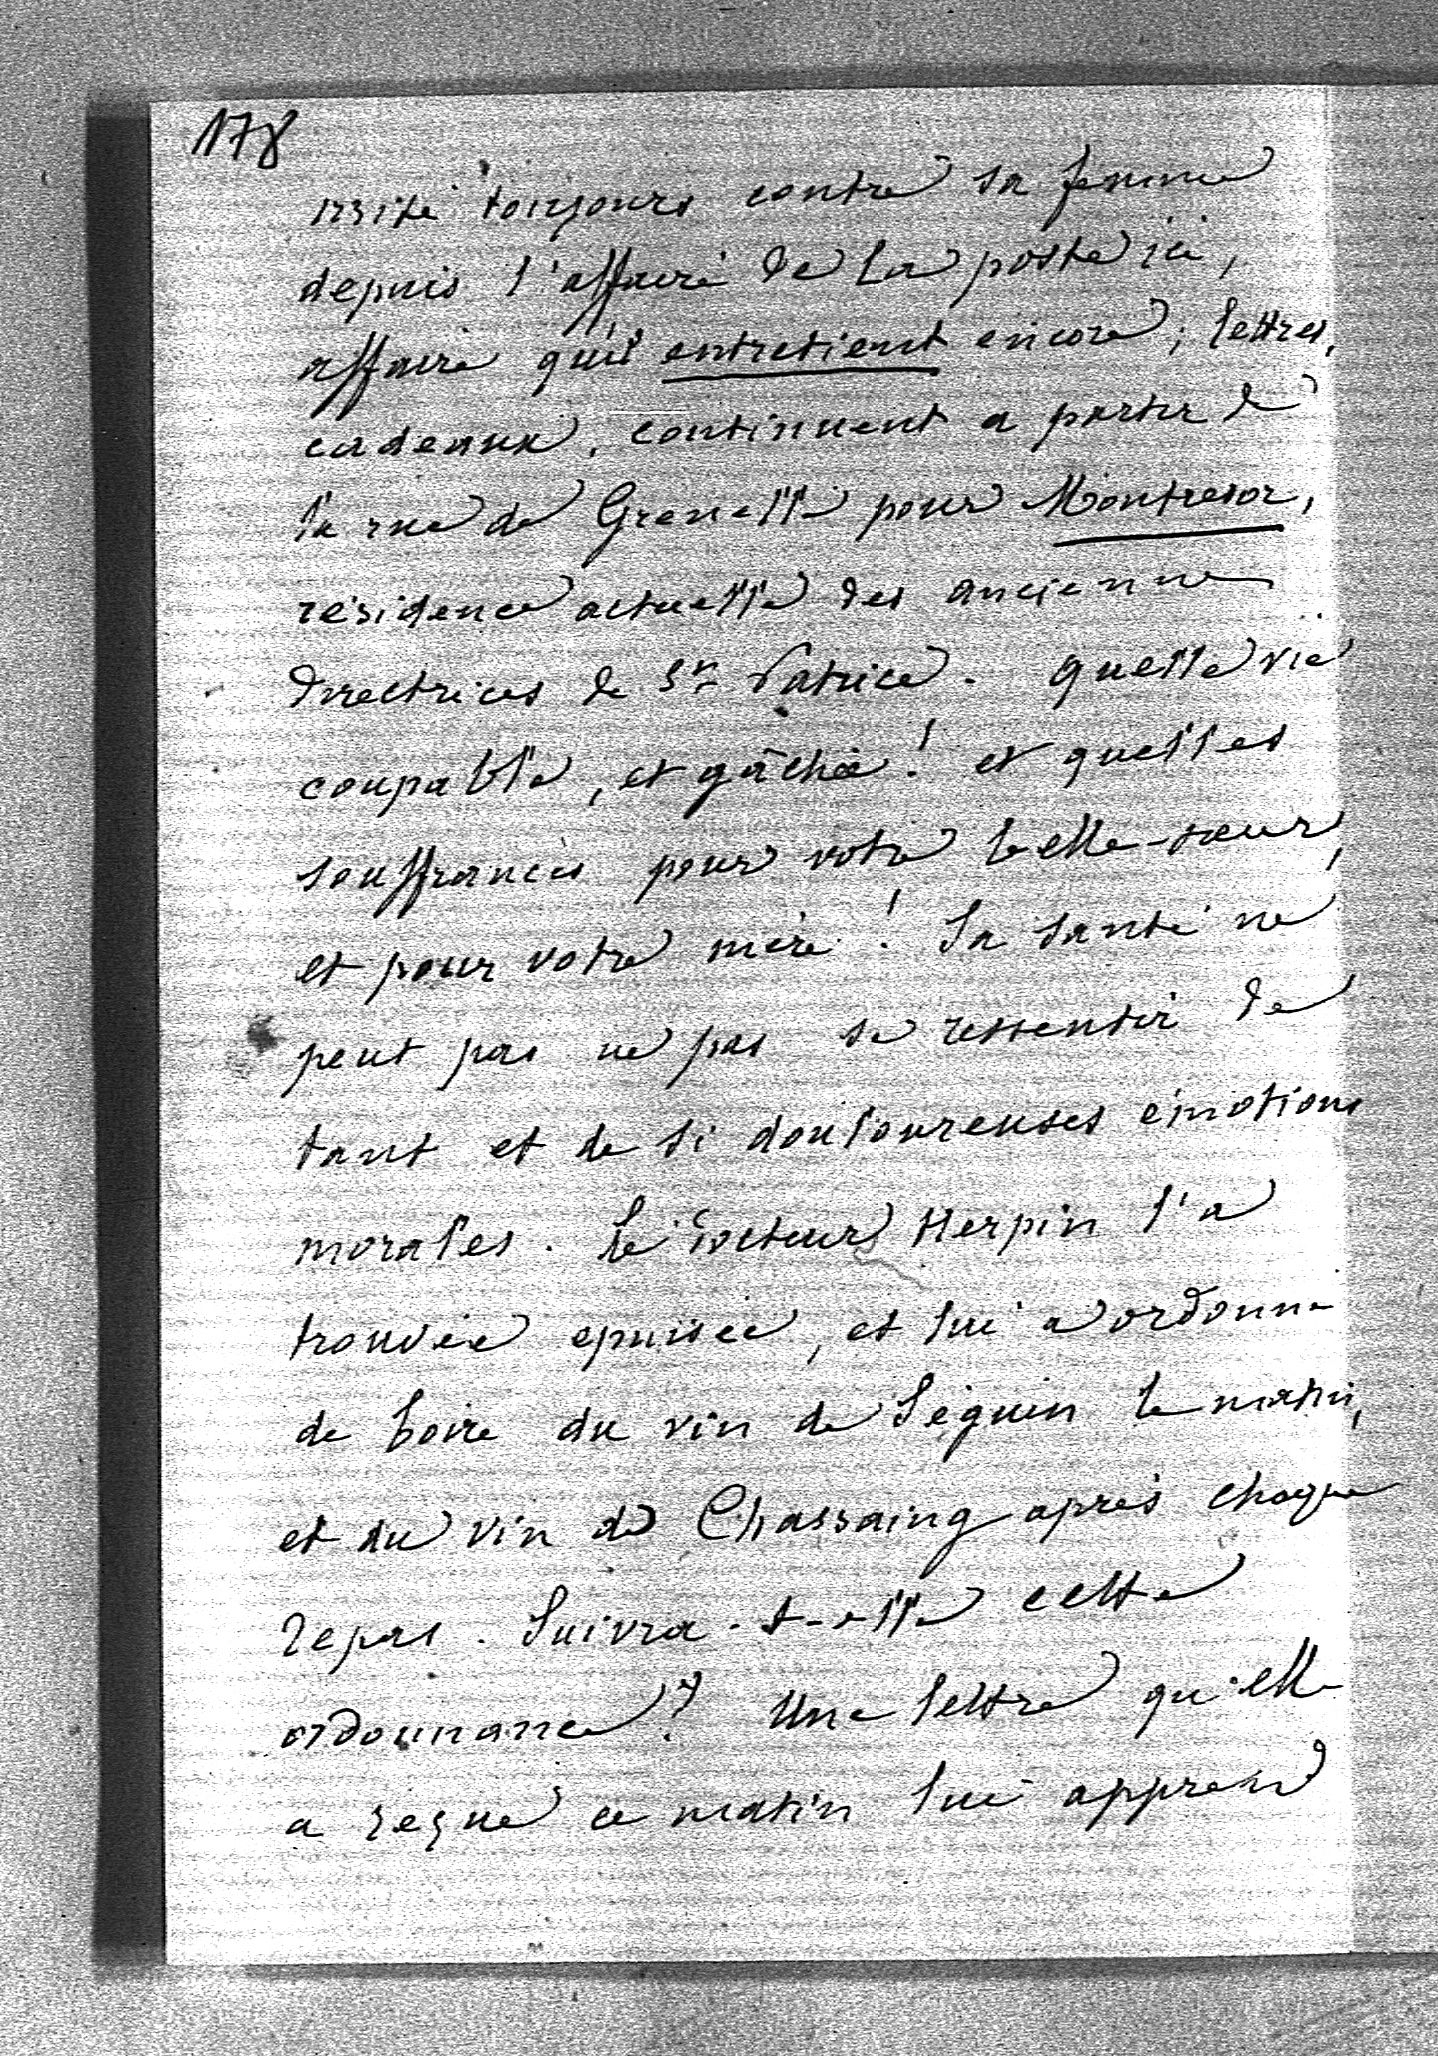 178
irrité toujours contre sa femme
depuis l'affaire de la poste ici,
affaire qu'il entretient encore; lettres,
cadeaux, continuent a partir de
la rue de Grenelle pour Montresor,
résidence actuelle des anciennes
directrices de St Patrice. Quelle vie
coupable, et gâchée! et quelles
souffrances pour votre belle-sœur,
et pour votre mère! Sa santé ne
peut pas ne pas se ressentir de
tant et de si douloureuses émotions
morales. Le docteur Herpin l'a
trouvée epuisée, et lui a ordonné
de boire du vin de Séguin le matin,
et du vin de Chassaing après chaque
repas. Suivra-t-elle cette
ordonnance? Une lettre qu'elle
a reçue ce matin lui apprend